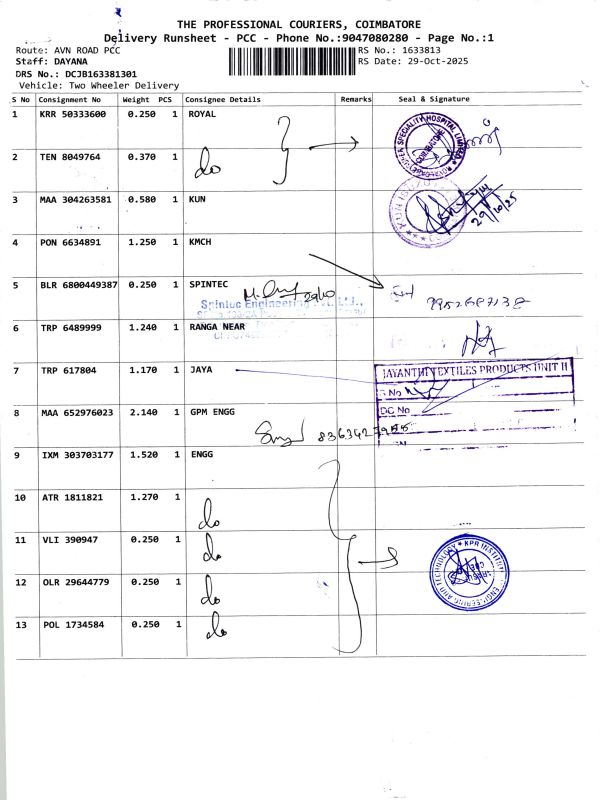 THE PROFESSIONAL COURIERS, COIMBATORE
Delivery Runsheet - PCC - Phone No.:9047080280 - Page No.:1
Route: AVN ROAD PCC
RS No.: 1633813
Staff: DAYANA
RS Date: 29-Oct-2025
DRS No.: DCJB163381301
Vehicle: Two Wheeler Delivery
S No Consignment No Weight PCS Consignee Details Remarks Seal & Signature
1 KRR 50333600 0.250 1 ROYAL
2 TEN 8049764 0.370 1 do
3 MAA 304263581 0.580 1 KUN
29/10/25
4 PON 6634891 1.250 1 KMCH
5 BLR 6800449387 0.250 1 SPINTEC
29/10
Spintec Engineering
6 TRP 6489999 1.240 1 RANGA NEAR
7 TRP 617804 1.170 1 JAYA
JAYANTHI TEXTILES PRODUCTS UNIT II
S No
DC No
8 MAA 652976023 2.140 1 GPM ENGG
9 IXM 303703177 1.520 1 ENGG
10 ATR 1811821 1.270 1 do
11 VLI 390947 0.250 1 do
KPR INSTITUTE ENGINEERING AND TECHNOLOGY
12 OLR 29644779 0.250 1 do
13 POL 1734584 0.250 1 do